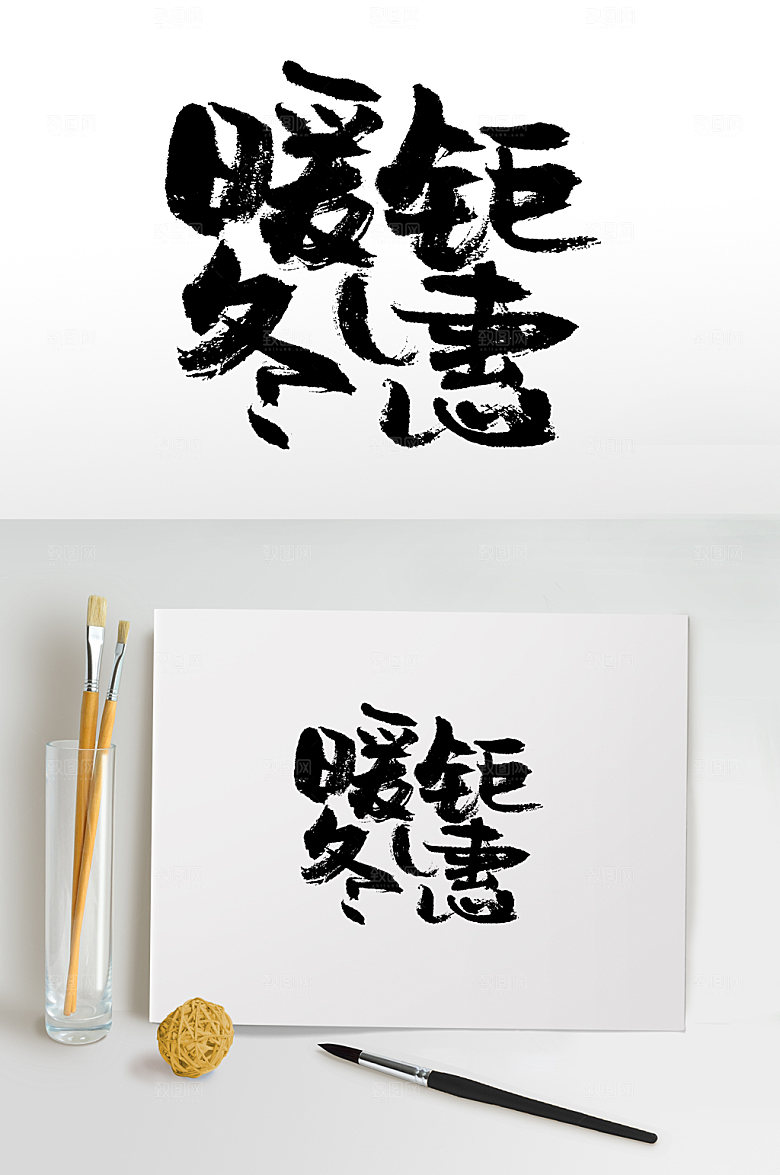 暖冬
钜惠
暖冬
钜惠